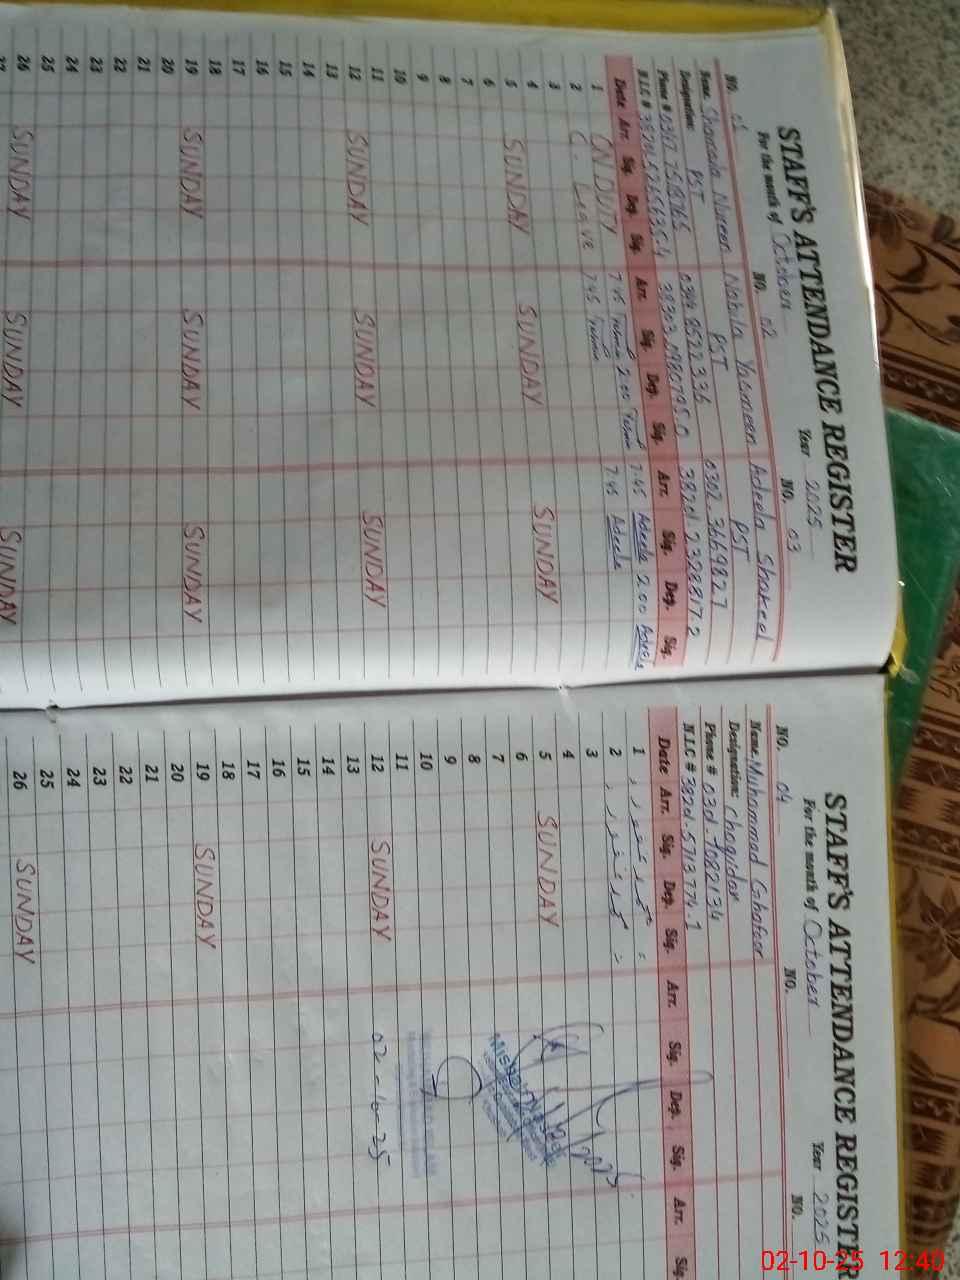 STAFF'S ATTENDANCE REGISTER
For the month of October Year 2025
NO. 01 NO. 02 NO. 03
Name. Shamaila Noreen Nabila Yasmeen Adeela Shakeel
Designation: PST PST PST
Phone # 0347.7518765 0344.8522336 0302.3669827
N.I.C # 38303.0980795.0 38201.2328817.2
Date Arr. Sig. Dep. Sig. Arr. Sig. Dep. Sig. Arr. Sig. Dep. Sig.
1 ON DUTY 7.45 2.00 7.45 Adeela 2.00 Adeela
2 C. Leave 7.45 7.45 Adeela
3
4
5 SUNDAY SUNDAY SUNDAY
6
7
8
9
10
11
12 SUNDAY SUNDAY SUNDAY
13
14
15
16
17
18
19 SUNDAY SUNDAY SUNDAY
20
21
22
23
24
25
26 SUNDAY SUNDAY SUNDAY
27
STAFF'S ATTENDANCE REGISTER
For the month of October Year 2025
NO. 04 NO. NO.
Name. Muhammad Ghafoor
Designation: Choquidar
Phone # 0301.7082134
N.I.C # 38201.5713774.1
Date Arr. Sig. Dep. Sig. Arr. Sig. Dep. Sig. Arr. Sig.
1
2
3
4
5 SUNDAY
6
7
8
9
10
11
12 SUNDAY 02-10-25
13
14
15
16
17
18
19 SUNDAY
20
21
22
23
24
25
26 SUNDAY
02-10-25 12:40